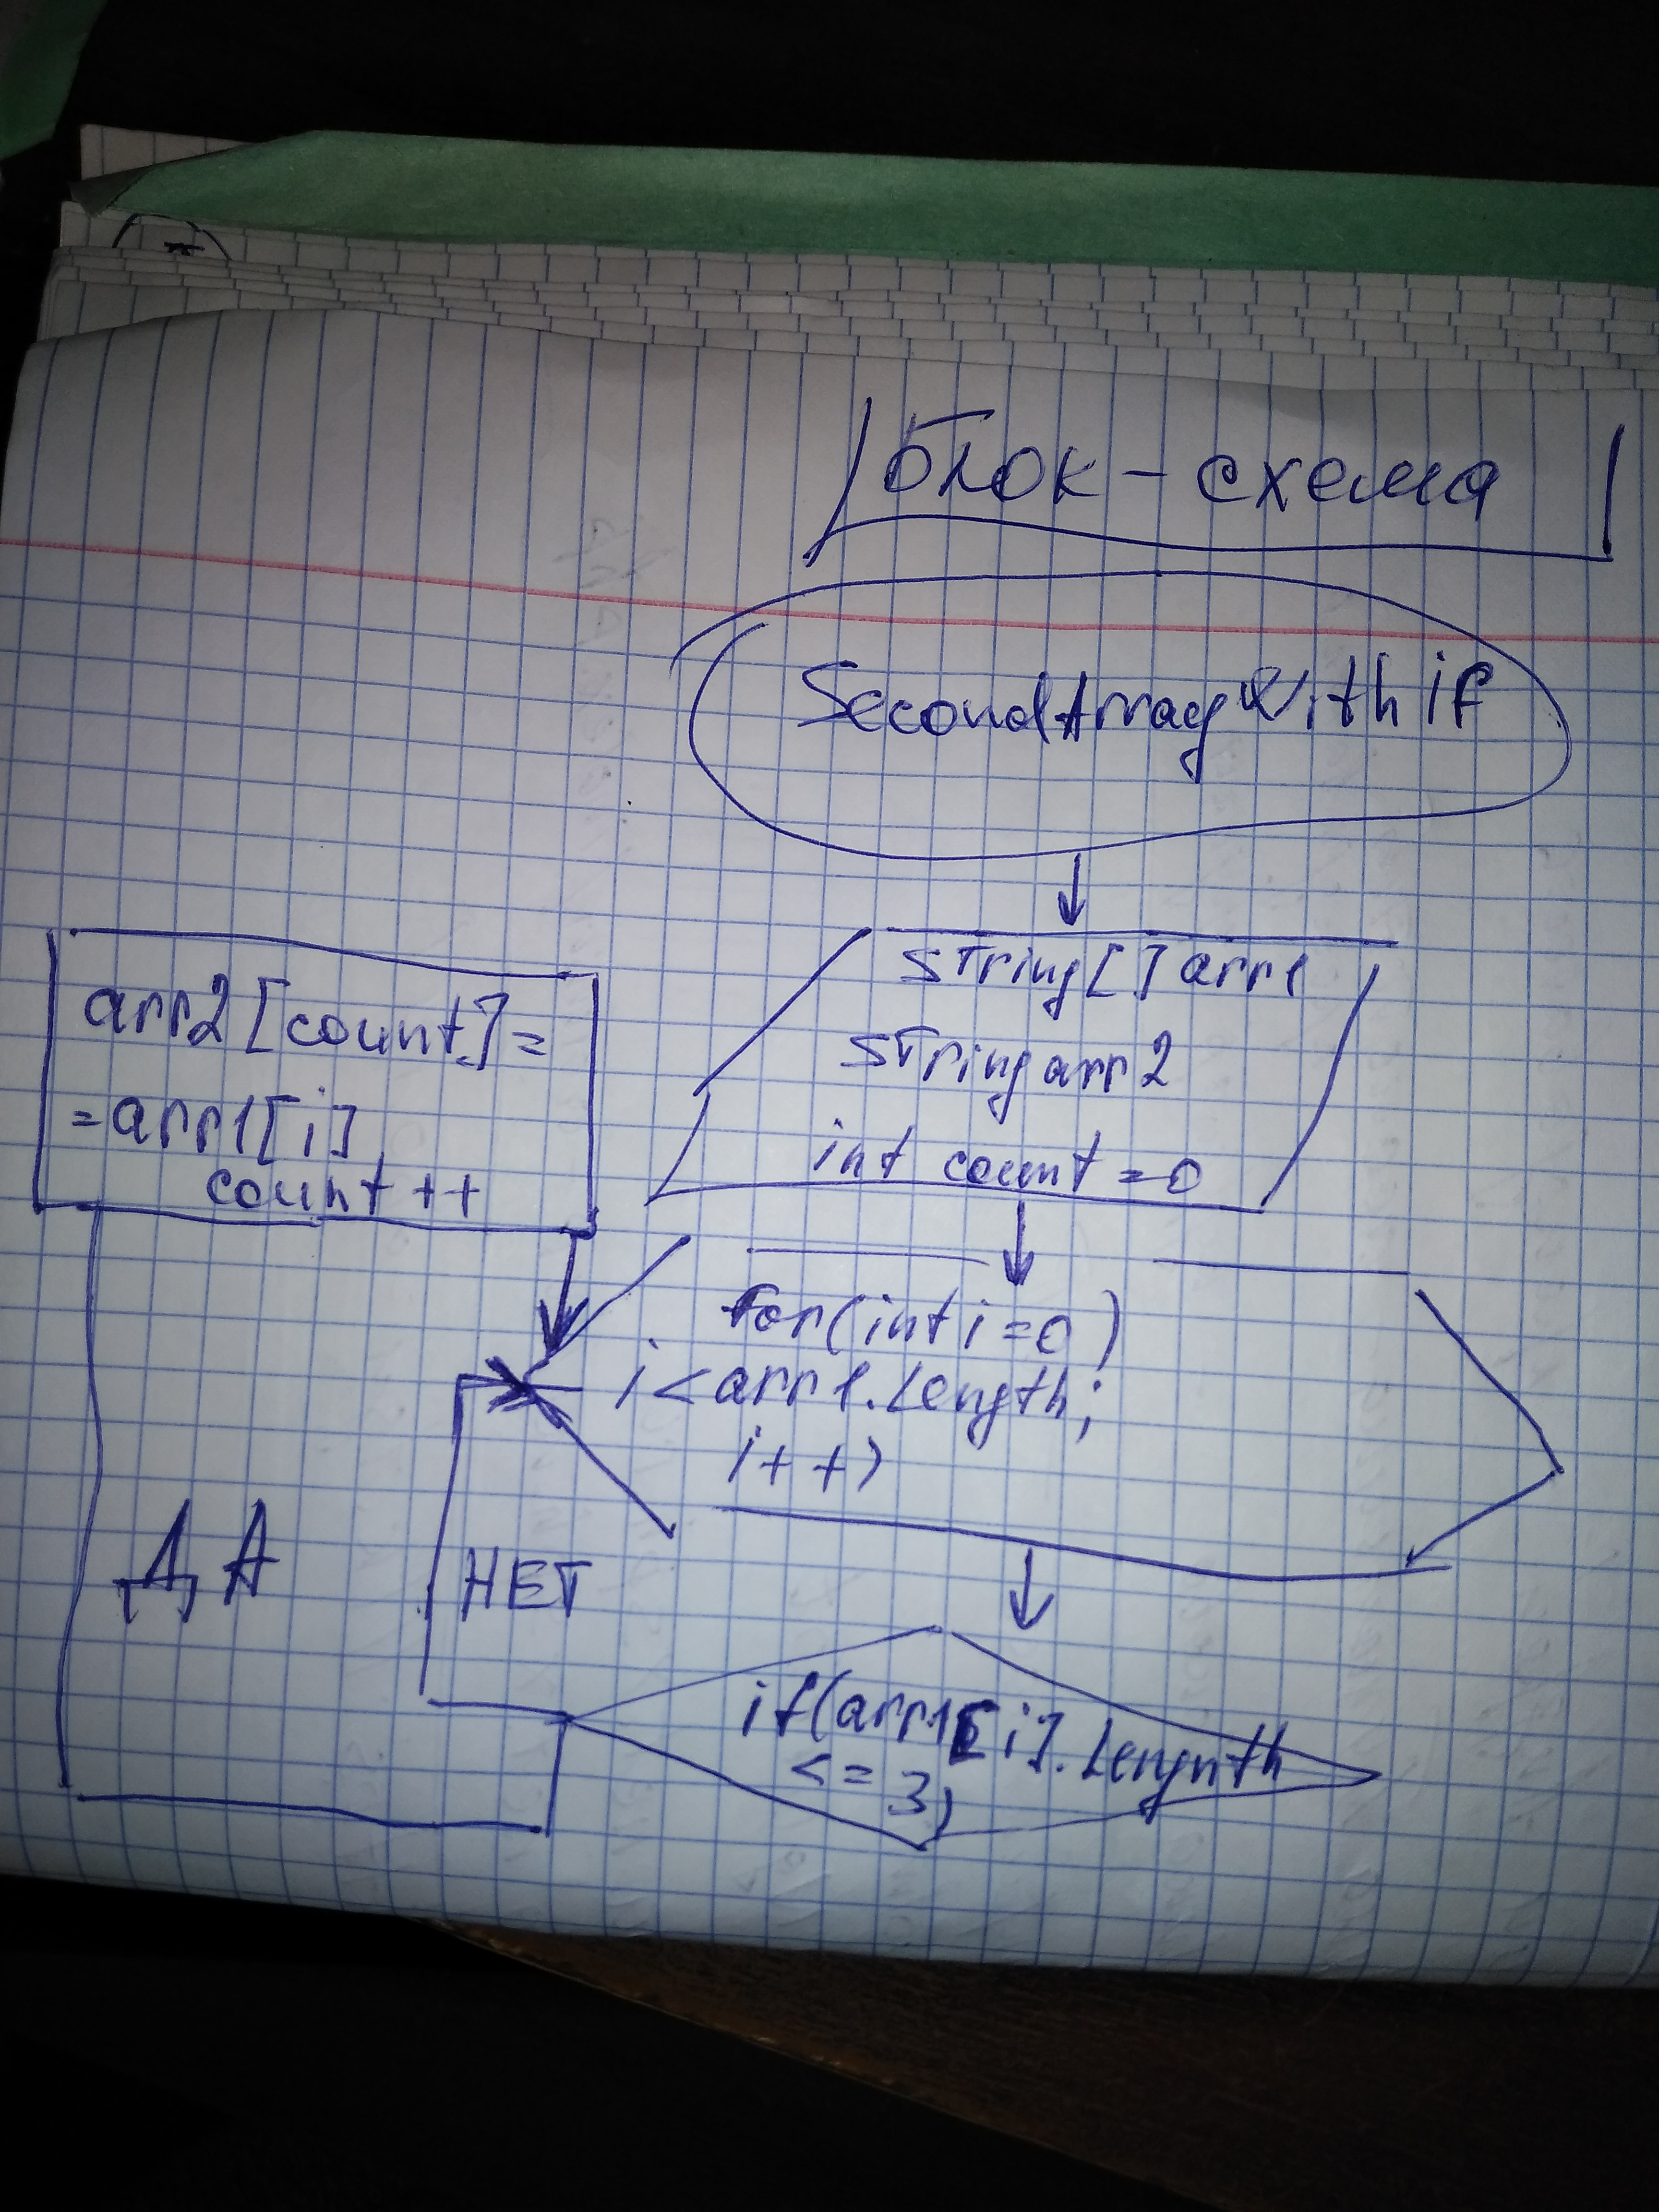 блок-схема
SecondArrayWithif
string[] arr1
string arr2
int count = 0
for(int i=0)
i<arr1.Length;
i++)
if(arr1[i].Lengnth
<= 3)
НЕТ
ДА
arr2[count]=
=arr1[i]
count ++